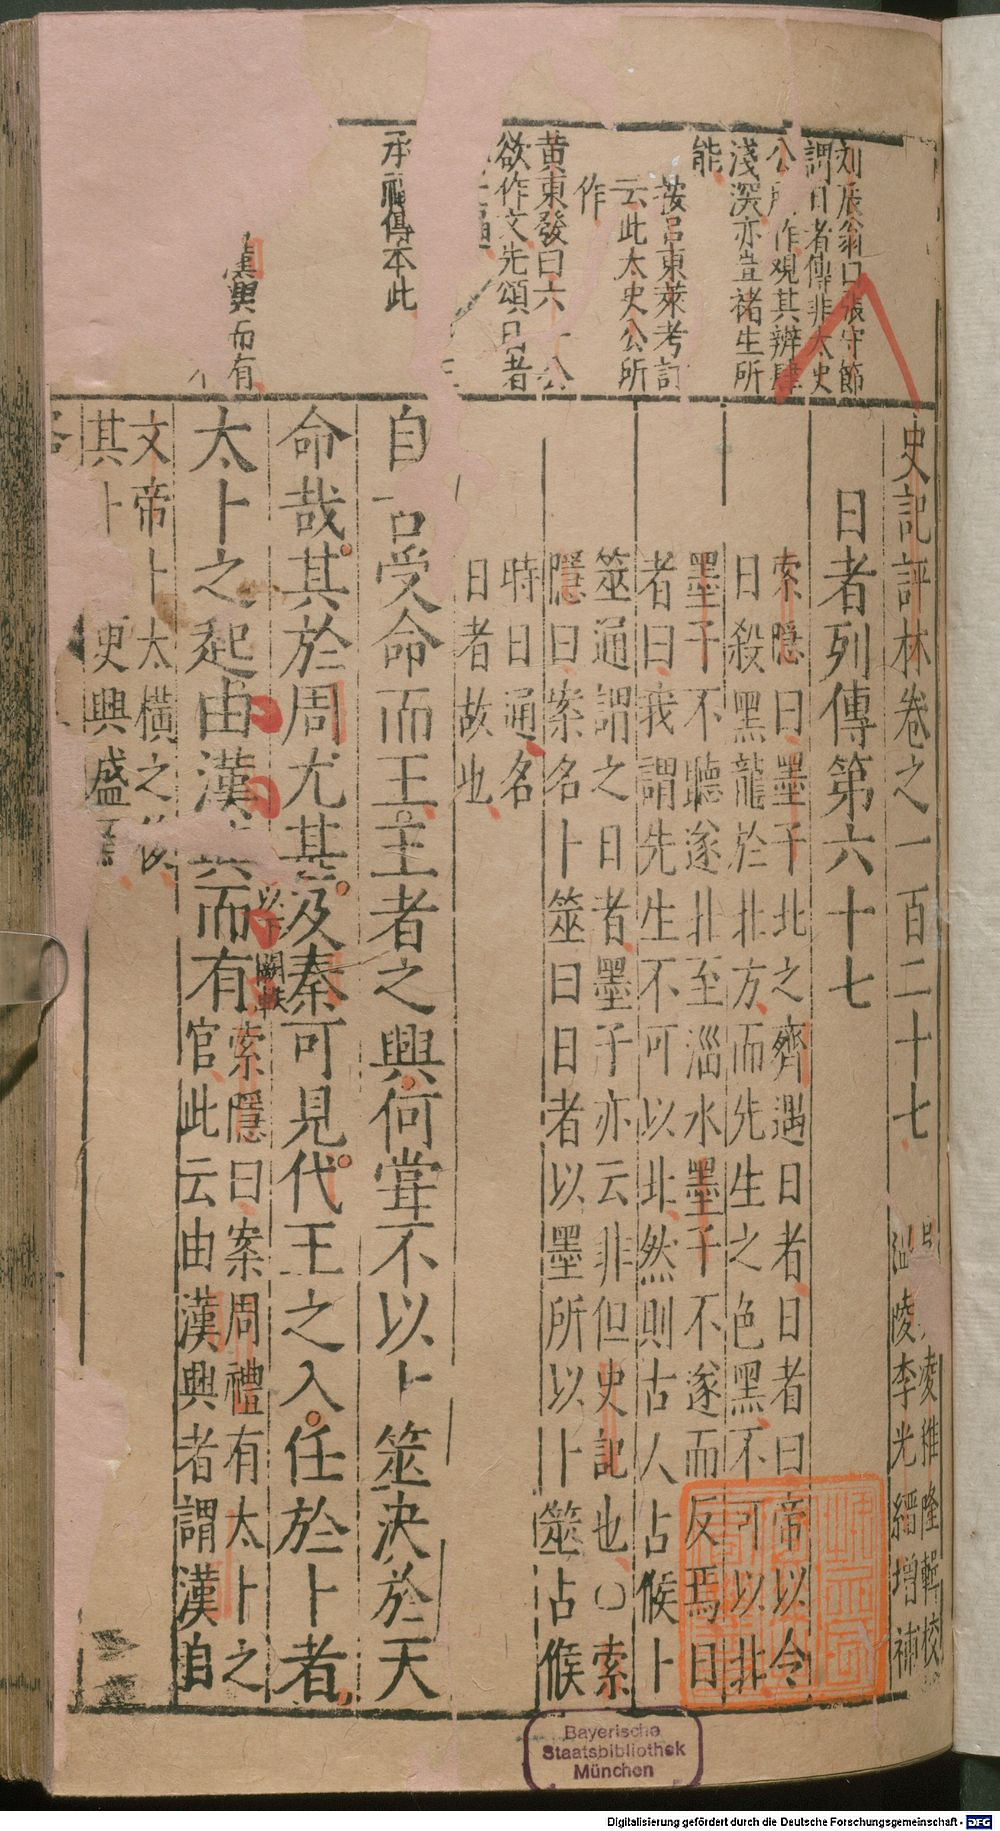 史記評林卷之一百二十七
凌稚隆輯校
溫陵李光縉增補
日者列傳第六十七
索隱曰墨子北之齊遇日者日者曰帝以今
日殺黑龍於北方而先生之色黑不可以北
墨子不聽遂北至淄水墨子不遂而反焉日
者曰我謂先生不可以北然則古人占候卜
筮通謂之日者墨子亦云非但史記也○索
隱曰案名卜筮曰日者以墨所以卜筮占候
時日通名
日者故也
自古受命而王王者之興何嘗不以卜筮決於天
命哉其於周尤甚及秦可見代王之入任於卜者
太卜之起由漢興而有
索隱曰案周禮有太卜之
官此云由漢興者謂漢自
文帝卜太橫之後
其卜 史興盛焉
劉辰翁曰張守節
謂日者傳非太史
公所作觀其辨肆
淺深亦豈褚生所
能
按呂東萊考訂
云此太史公所
作
黄東發曰六 公
欲作文先頌日者
承禍傳本此
漢興而有
Bayerische
Staatsbibliothek
München
Digitalisierung gefördert durch die Deutsche Forschungsgemeinschaft - DFG